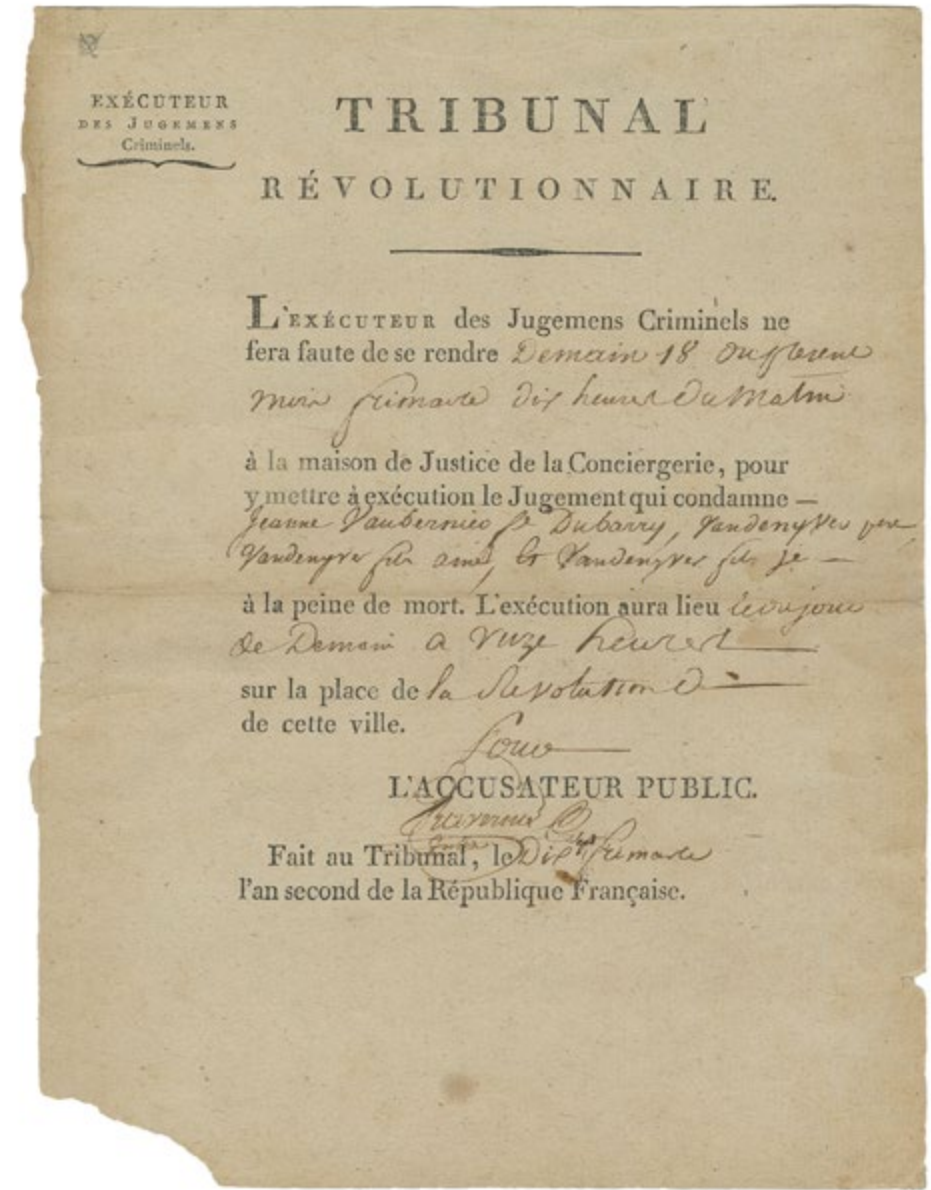 EXÉCUTEUR
DES JUGEMENS
Criminels.
TRIBUNAL
RÉVOLUTIONNAIRE.
L'EXÉCUTEUR des Jugemens Criminels ne
fera faute de se rendre Demain 18 du present
mois frimaire dix heures du Matin
à la maison de Justice de la Conciergerie, pour
y mettre à exécution le Jugement qui condamne —
Jeanne Vaubernier fe Dubarry, Vandenyver pere,
Vandenyver fils ainé, et Vandenyver fils je —
à la peine de mort. L'exécution aura lieu jour
de Demain a unze heures
sur la place de la Revolution
de cette ville.
L'ACCUSATEUR PUBLIC.
Fait au Tribunal, le Dix frimaire
l'an second de la République Française.